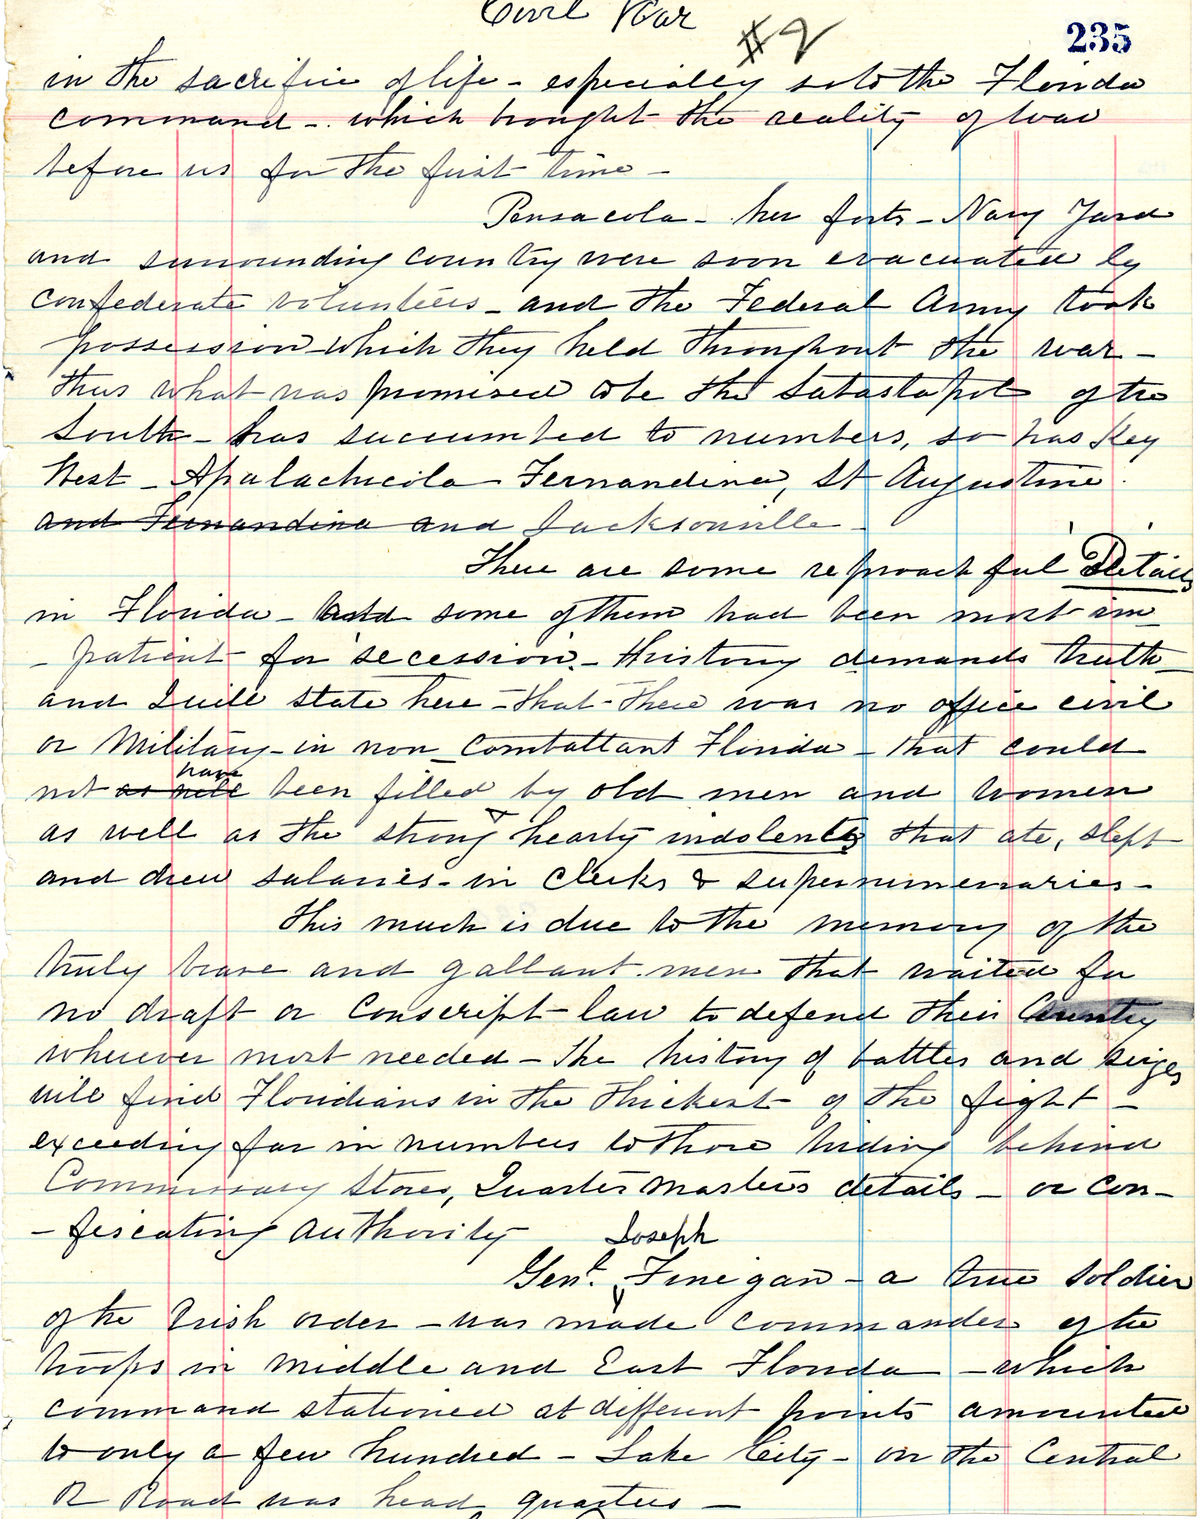 Civil War
#2
235
in the sacrifice of life - especially so to the Florida
command - which brought the reality of war
before us for the first time -
Pensacola - her forts - Navy Yard
and surrounding country were soon evacuated by
confederate volunteers - and the Federal Army took
possession which they held throughout the war -
thus what was promised to be the Sabastapol of the
South - has succumbed to numbers, so has Key
West - Apalachicola - Fernandina, St Augustine
and Fernandina and Jacksonville -
There are some reproachful Details
in Florida - and some of them had been most im
- patient for secession - History demands truth -
and I will state here - that - there was no office civil
or Military - in non - Combattant Florida - that could
have
not as well been filled by old men and women
as well as the strong hearty indolents that ate, slept
and drew salaries - in Clerks & supernumeraries -
This much is due to the memory of the
truly brave and gallant men that waited for
no draft or Conscript - law to defend their Country
wherever most needed - The history of battles and seiges
will find Floridians in the thickest of the fight -
exceeding far in numbers to those hiding behind
Commissary stores, Quarter Masters details - or Con -
- fiscating authority
Joseph
Genl. Finegan - a true soldier
of the Irish order - was made commander of the
troops in Middle and East Florida - which
command stationed at different points amounted
to only a few hundred - Lake City - on the Central
R Road was head quarters -